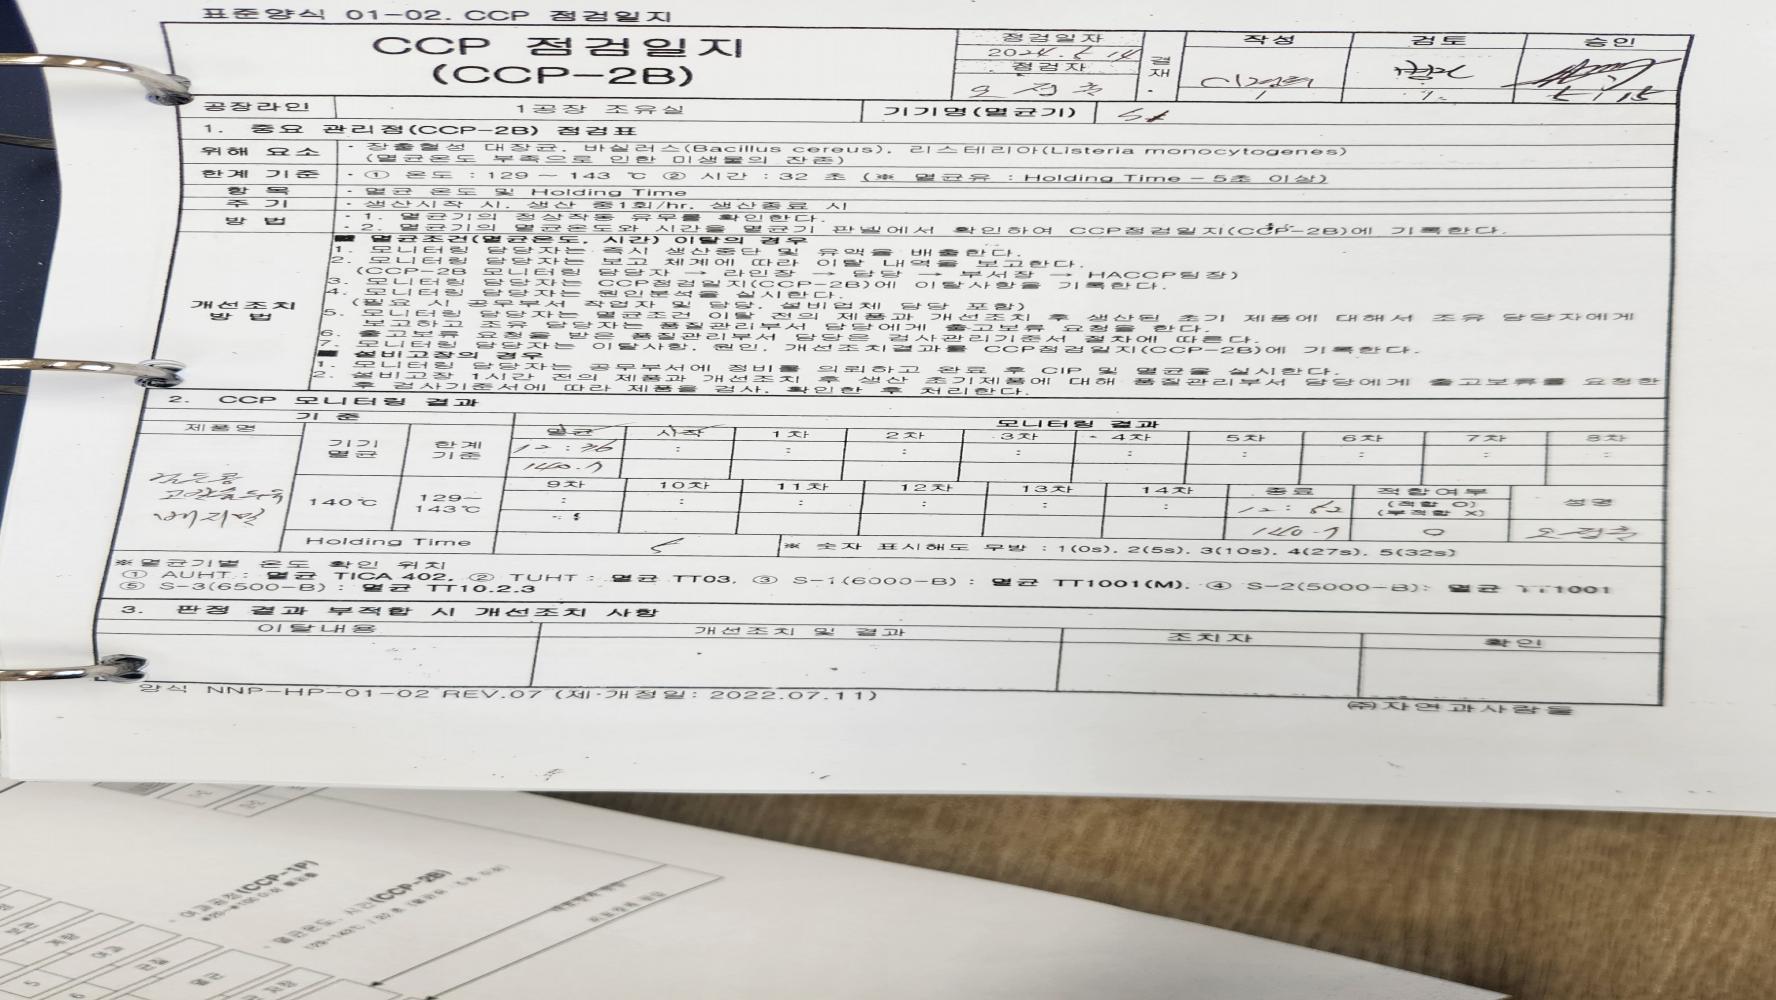 표준양식 01-02. CCP 점검일지
CCP 점검일지
(CCP-2B)
점검일자
2024. 5. 14
점검자
결재
작성
검토
승인
5/15
공장라인
1공장 조유실
기기명(멸균기)
1. 중요 관리점(CCP-2B) 점검표
위해 요소
· 장출혈성 대장균, 바실러스(Bacillus cereus), 리스테리아(Listeria monocytogenes)
(멸균온도 부족으로 인한 미생물의 잔존)
한계 기준
· ① 온도 : 129 ~ 143 ℃ ② 시간 : 32 초 (※ 멸균유 : Holding Time - 5초 이상)
항 목
· 멸균 온도 및 Holding Time
주 기
· 생산시작 시, 생산 중1회/hr, 생산종료 시
방 법
· 1. 멸균기의 정상작동 유무를 확인한다.
· 2. 멸균기의 멸균온도와 시간을 멸균기 판넬에서 확인하여 CCP점검일지(CCP-2B)에 기록한다.
개선조치
방 법
■ 멸균조건(멸균온도, 시간) 이탈의 경우
1. 모니터링 담당자는 즉시 생산중단 및 유액을 배출한다.
2. 모니터링 담당자는 보고 체계에 따라 이탈 내역을 보고한다.
(CCP-2B 모니터링 담당자 → 라인장 → 담당 → 부서장 → HACCP팀장)
3. 모니터링 담당자는 CCP점검일지(CCP-2B)에 이탈사항을 기록한다.
4. 모니터링 담당자는 원인분석을 실시한다.
(필요 시 공무부서 작업자 및 담당, 설비업체 담당 포함)
5. 모니터링 담당자는 멸균조건 이탈 전의 제품과 개선조치 후 생산된 초기 제품에 대해서 조유 담당자에게
보고하고 조유 담당자는 품질관리부서 담당에게 출고보류 요청을 한다.
6. 출고보류 요청을 받은 품질관리부서 담당은 검사관리기준서 절차에 따른다.
7. 모니터링 담당자는 이탈사항, 원인, 개선조치결과를 CCP점검일지(CCP-2B)에 기록한다.
■ 설비고장의 경우
1. 모니터링 담당자는 공무부서에 정비를 의뢰하고 완료 후 CIP 및 멸균을 실시한다.
2. 설비고장 1시간 전의 제품과 개선조치 후 생산 초기제품에 대해 품질관리부서 담당에게 출고보류를 요청한
후 검사기준서에 따라 제품을 검사, 확인한 후 처리한다.
2. CCP 모니터링 결과
기 준
모니터링 결과
제품명
기기
멸균
한계
기준
멸균 시작 1차 2차 3차 4차 5차 6차 7차 8차
12 : 36 : : : : : : : : :
140.7
9차 10차 11차 12차 13차 14차 종료 적합여부
(적합 O)
(부적합 X)
성명
검은콩
베지밀
140℃
129~
143℃
: : : : : : 12 : 52
140.7
O
Holding Time
5
※ 숫자 표시해도 무방 : 1(0s), 2(5s), 3(10s), 4(27s), 5(32s)
※멸균기별 온도 확인 위치
① AUHT : 멸균 TICA 402, ② TUHT : 멸균 TT03, ③ S-1(6000-B) : 멸균 TT1001(M), ④ S-2(5000-B): 멸균 TT1001
⑤ S-3(6500-B) : 멸균 TT10.2.3
3. 판정 결과 부적합 시 개선조치 사항
이탈내용
개선조치 및 결과
조치자
확인
양식 NNP-HP-01-02 REV.07 (제·개정일: 2022.07.11)
㈜자연과사람들
여과공정(CCP-1P)
멸균온도, 시간(CCP-2B)
여과
균질
멸균
5
6